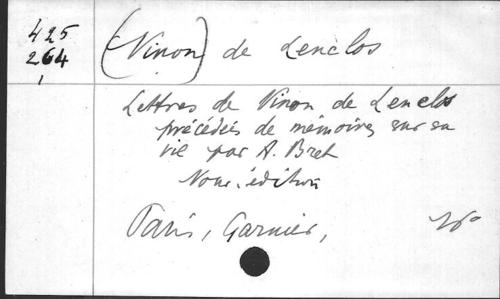 425
264
(Ninon) de Lenclos
Lettres de Ninon de Lenclos
précédées de mémoires sur sa
vie par A. Bret
Nouv. édition
Paris, Garnier,